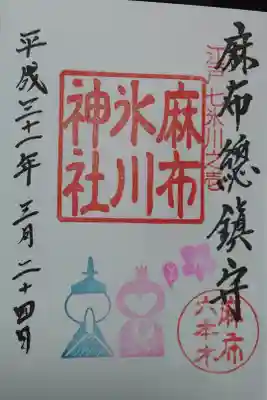 麻布總鎮守
江戸七氷川之壱
麻布
氷川
神社
麻布
六本木
平成三十一年 三月二十四日